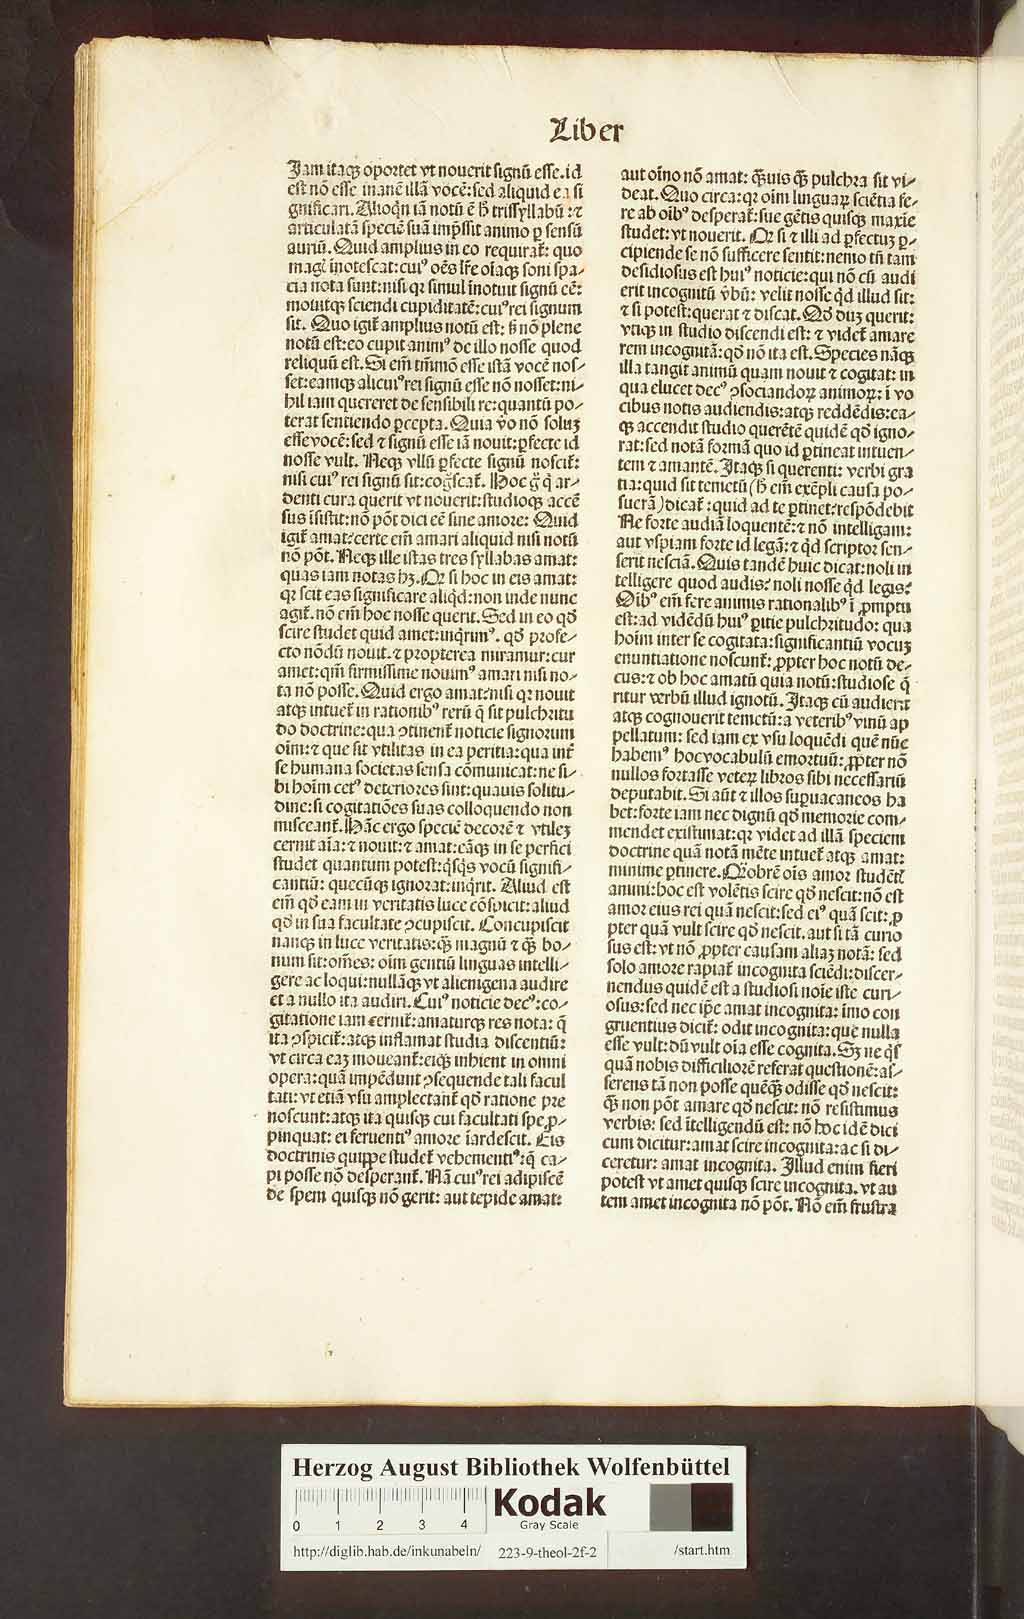 Liber
Jam itaqꝫ oportet vt nouerit signū esse. id
est nō esse inanē illā vocē: sed aliquid ea si
gnificari. Alioqn̄ iā notū ē hͦ trissyllabū: ⁊
articulatā speciē suā imp̄ssit animo ꝑ sensū
auriū. Quid amplius in eo requirat̄: quo
magꝭ īnotescat: cuiꝰ oēs lr̄e oīaqꝫ soni spa/
cia nota sunt: nisi qꝛ simul īnotuit signū eē:
mouitqꝫ sciendi cupiditatē: cuiꝰ rei signum
sit. Quo igit̄ amplius notū est: sꝫ nō plene
notū est: eo cupit animꝰ de illo nosse quod
reliquū est. Si em̄ tm̄mō esse istā vocē nos/
set: eamqꝫ alicuiꝰ rei signū esse nō nosset: ni/
hil iam quereret de sensibili re: quantū po/
terat sentiendo ꝑcepta. Quia v̄o nō soluꝫ
esse vocē: sed ⁊ signū esse iā nouit: ꝑfecte id
nosse vult. Neqꝫ vllū ꝑfecte signū noscit̄:
nisi cuiꝰ rei signū sit: cog̊scat̄. Hoc g̊ q̇ ar/
denti cura querit vt nouerit: studioqꝫ accē
sus īsistit: nō pōt dici eē sine amore: Quid
igit̄ amat? certe em̄ amari aliquid nisi notū
nō pōt. Neqꝫ ille istas tres syllabas amat:
quas iam notas hꝫ. Qꝛ si hoc in eis amat:
qꝛ scit eas significare aliqd̄: non inde nunc
agit̄. nō em̄ hoc nosse querit. Sed in eo qd̄
scire studet quid amet: inq̇rimꝰ. qd̄ profe/
cto nōdū nouit. ⁊ propterea miramur: cur
amet: qm̄ firmissime nouimꝰ amari nisi no/
ta nō posse. Quid ergo amat? nisi qꝛ nouit
atqꝫ intuet̄ in rationibꝰ rerū q̄ sit pulchritu
do doctrine: qua ꝯtinent̄ noticie signorum
oīm: ⁊ que sit vtilitas in ea peritia: qua int̄
se humana societas sensa cōmunicat: ne si/
bi hoīm cetꝰ deteriores sint: quauis solitu/
dine: si cogitatiōes suas colloquendo non
misceant̄. Hāc ergo speciē decorē ⁊ vtileꝫ
cernit aīa: ⁊ nouit: ⁊ amat: eāqꝫ in se perfici
studet quantum potest: q̇sq̇s vocū signifi/
cantiū: quecūqꝫ ignorat: inq̇rit. Aliud est
em̄ qd̄ eam in veritatis luce cōspicit: aliud
qd̄ in sua facultate ꝯcupiscit. Concupiscit
nanqꝫ in luce veritatis: qꝫ magnū ⁊ qꝫ bo/
num sit: om̄es: oīm gentiū linguas intelli/
gere ac loqui: nullāqꝫ vt alienigena audire
et a nullo ita audiri. Cuiꝰ noticie decꝰ: co/
gitatione iam cernit̄: amaturqꝫ res nota: q̄
ita ꝯspicit̄: atqꝫ inflamat studia discentiū:
vt circa eaꝫ moueant̄: eiqꝫ inhient in omni
opera: quā impēdunt ꝯsequende tali facul
tati: vt etiā vsu amplectant̄ qd̄ ratione pre
noscunt: atqꝫ ita quisqꝫ cui facultati spe ꝓ/
pinquat: ei feruentiꝰ amore īardescit. Eis
doctrinis quippe studet̄ vehementiꝰ: q̄ ca/
pi posse nō desperant̄. Nā cuiꝰ rei adipiscē
de spem quisqꝫ nō gerit: aut tepide amat:
aut oīno nō amat: qꝫuis qꝫ pulchra sit vi/
deat. Quo circa: qꝛ oīm linguaꝝ sciētia fe/
re ab oībꝰ desperat̄: sue gētis quisqꝫ maxīe
studet: vt nouerit. Qꝛ si ⁊ illi ad ꝑfectuꝫ ꝑ/
cipiende se nō sufficere sentit: nemo tn̄ tam
desidiosus est huiꝰ noticie: qui nō cū audi
erit incognitū v̄bū: velit nosse qd̄ illud sit:
⁊ si potest: querat ⁊ discat. Qd̄ duꝫ querit:
vtiqꝫ in studio discendi est: ⁊ videt̄ amare
rem incognitā: qd̄ nō ita est. Species nāqꝫ
illa tangit animū quam nouit ⁊ cogitat: in
qua elucet decꝰ ꝯsociandoꝝ animoꝝ: ī vo
cibus notis audiendis: atqꝫ reddēdis: ea/
qꝫ accendit studio querētē quidē qd̄ igno/
rat: sed notā formā quo id ꝑtineat intuen/
tem ⁊ amantē. Itaqꝫ si querenti: verbi gra
tia: quid sit temetū (hͦ em̄ exēpli causa po/
suerā) dicat̄: quid ad te ꝑtinet: respōdebit
Ne forte audiā loquentē: ⁊ nō intelligam:
aut vspiam forte id legā: ⁊ qd̄ scriptor sen/
serit nesciā. Quis tandē huic dicat: noli in
telligere quod audis? noli nosse qd̄ legis?
Oībꝰ em̄ fere animis rationalibꝰ ī ꝓmptu
est: ad vidēdū huiꝰ ꝑitie pulchritudo: qua
hoīm inter se cogitata: significantiū vocuꝫ
enuntiatione noscunt̄: ꝓpter hoc notū de/
cus: ⁊ ob hoc amatū quia notū: studiose q̄
ritur verbū illud ignotū. Itaqꝫ cū audierit
atqꝫ cognouerit temetū: a veteribꝰ vinū ap
pellatum: sed iam ex vsu loquēdi quē nūc
habemꝰ hoc vocabulū emortuū: ꝓpter nō
nullos fortasse veteꝝ libros sibi necessariū
deputabit. Si aūt ⁊ illos suꝑuacaneos ha
bet: forte iam nec dignū qd̄ memorie com/
mendet existimat: qꝛ videt ad illā speciem
doctrine quā notā mēte intuet̄ atqꝫ amat:
minime ꝑtinere. Qͣobrē oīs amor studētꝭ
animi: hoc est volētis scire qd̄ nescit: nō est
amor eius rei quā nescit: sed eiꝰ quā scit: ꝓ
pter quā vult scire qd̄ nescit. aut si tā curio
sus est: vt nō ꝓpter causam aliaꝫ notā: sed
solo amore rapiat̄ incognita sciēdi: discer/
nendus quidē est a studiosi noīe iste curi/
osus: sed nec ip̄e amat incognita: īmo con
gruentius dicit̄: odit incognita: que nulla
esse vult: dū vult oīa esse cognita. Sꝫ ne q̇s
quā nobis difficiliorē referat questionē: as/
serens tā non posse quēqꝫ odisse qd̄ nescit:
qꝫ non pōt amare qd̄ nescit: nō resistimus
verbis: sed ītelligendū est: nō hoc idē dici
cum dicitur: amat scire incognita: ac si di/
ceretur: amat incognita. Illud enim fieri
potest vt amet quisqꝫ scire incognita. vt au
tem amet incognita nō pōt. Nō em̄ frustra
Herzog August Bibliothek Wolfenbüttel
0 1 2 3 4
Kodak
Gray Scale
http://diglib.hab.de/inkunabeln/ 223-9-theol-2f-2 /start.htm